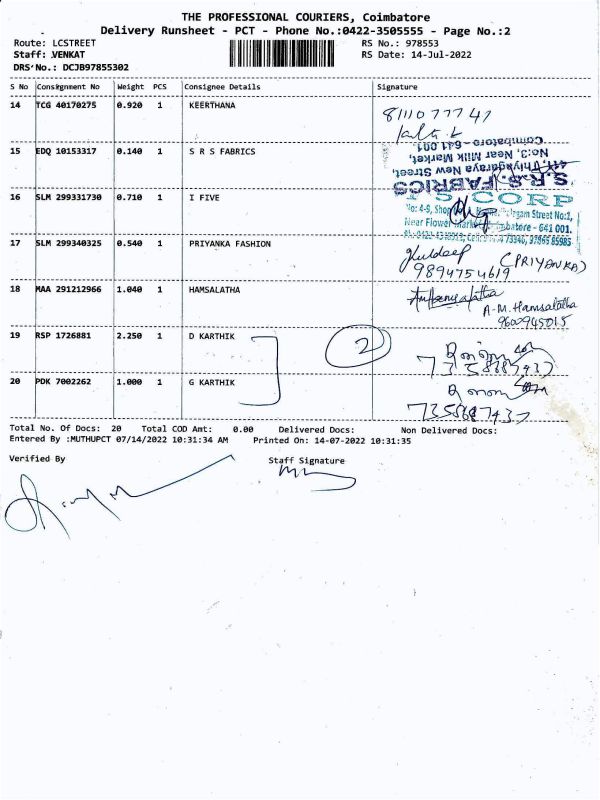 THE PROFESSIONAL COURIERS, Coimbatore
Delivery Runsheet - PCT - Phone No.:0422-3505555 - Page No.:2
Route: LCSTREET
RS No.: 978553
Staff: VENKAT
RS Date: 14-Jul-2022
DRS No.: DCJB97855302
S No Consignment No Weight PCS Consignee Details Signature
14 TCG 40170275 0.920 1 KEERTHANA
8111077747
15 EDQ 10153317 0.140 1 S R S FABRICS
S.R.S FABRICS
411, Thiyagaraya New Street,
No:3, Near Milk Market,
Coimbatore - 641 001.
16 SLM 299331730 0.710 1 I FIVE
CORP
No: 4-9, Shop Street No:1,
Near Flower Market, Coimbatore - 641 001.
17 SLM 299340325 0.540 1 PRIYANKA FASHION
Kuldeep (PRIYANKA)
9894754619
18 MAA 291212966 1.040 1 HAMSALATHA
A-M. Hamsalatha
9600945015
19 RSP 1726881 2.250 1 D KARTHIK
2
7358687437
20 PDK 7002262 1.000 1 G KARTHIK
7358687437
Total No. Of Docs: 20 Total COD Amt: 0.00 Delivered Docs: Non Delivered Docs:
Entered By :MUTHUPCT 07/14/2022 10:31:34 AM Printed On: 14-07-2022 10:31:35
Verified By Staff Signature